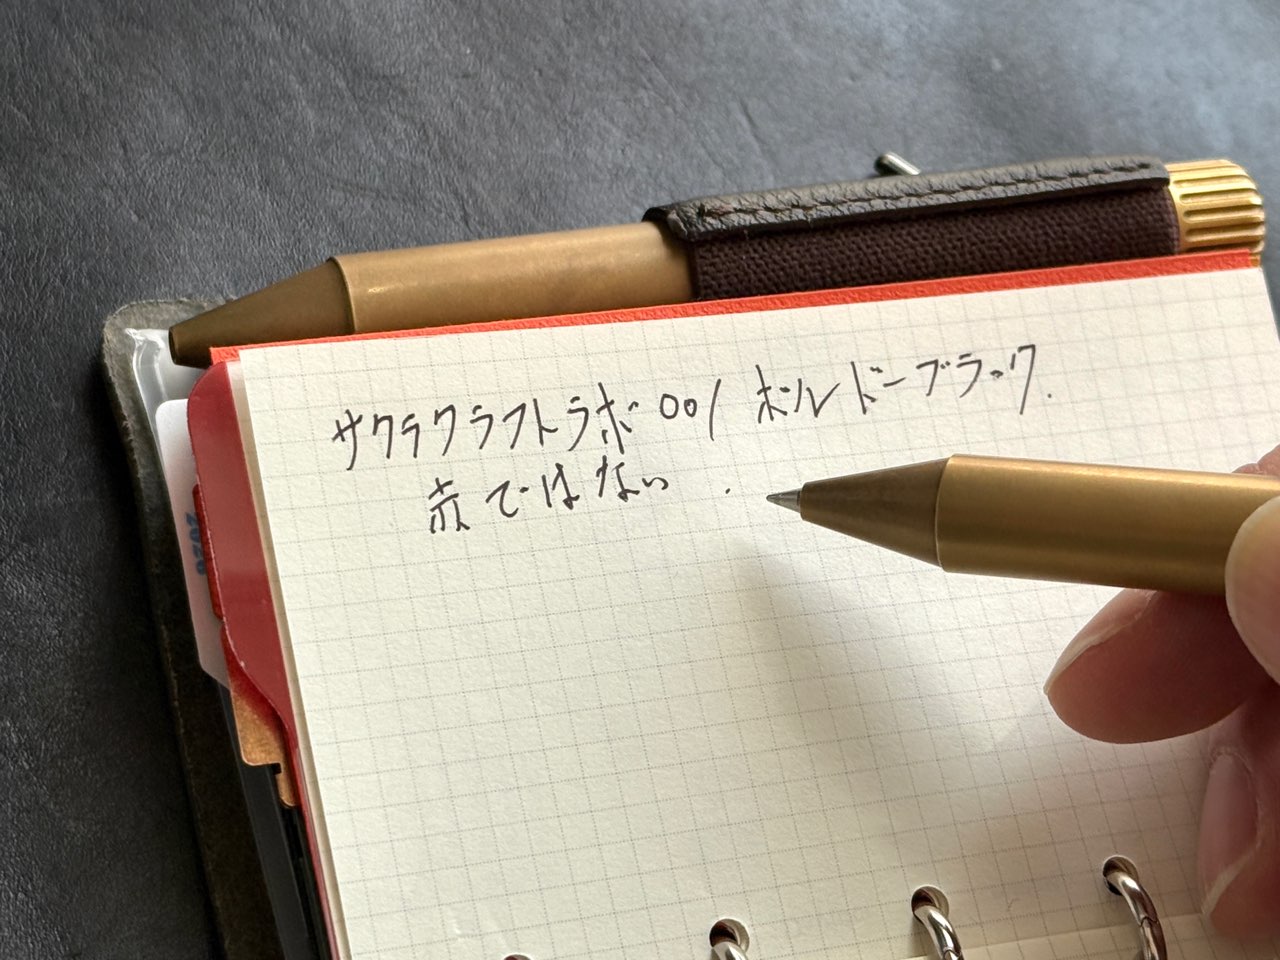 サクラクラフトラボ001 ボルドーブラック.
赤ではない.
2026